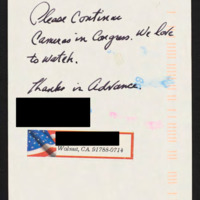 Please Continue
Cameras in Congress. We love
to watch.
Thanks in Advance.
Walnut, CA 91788-0714